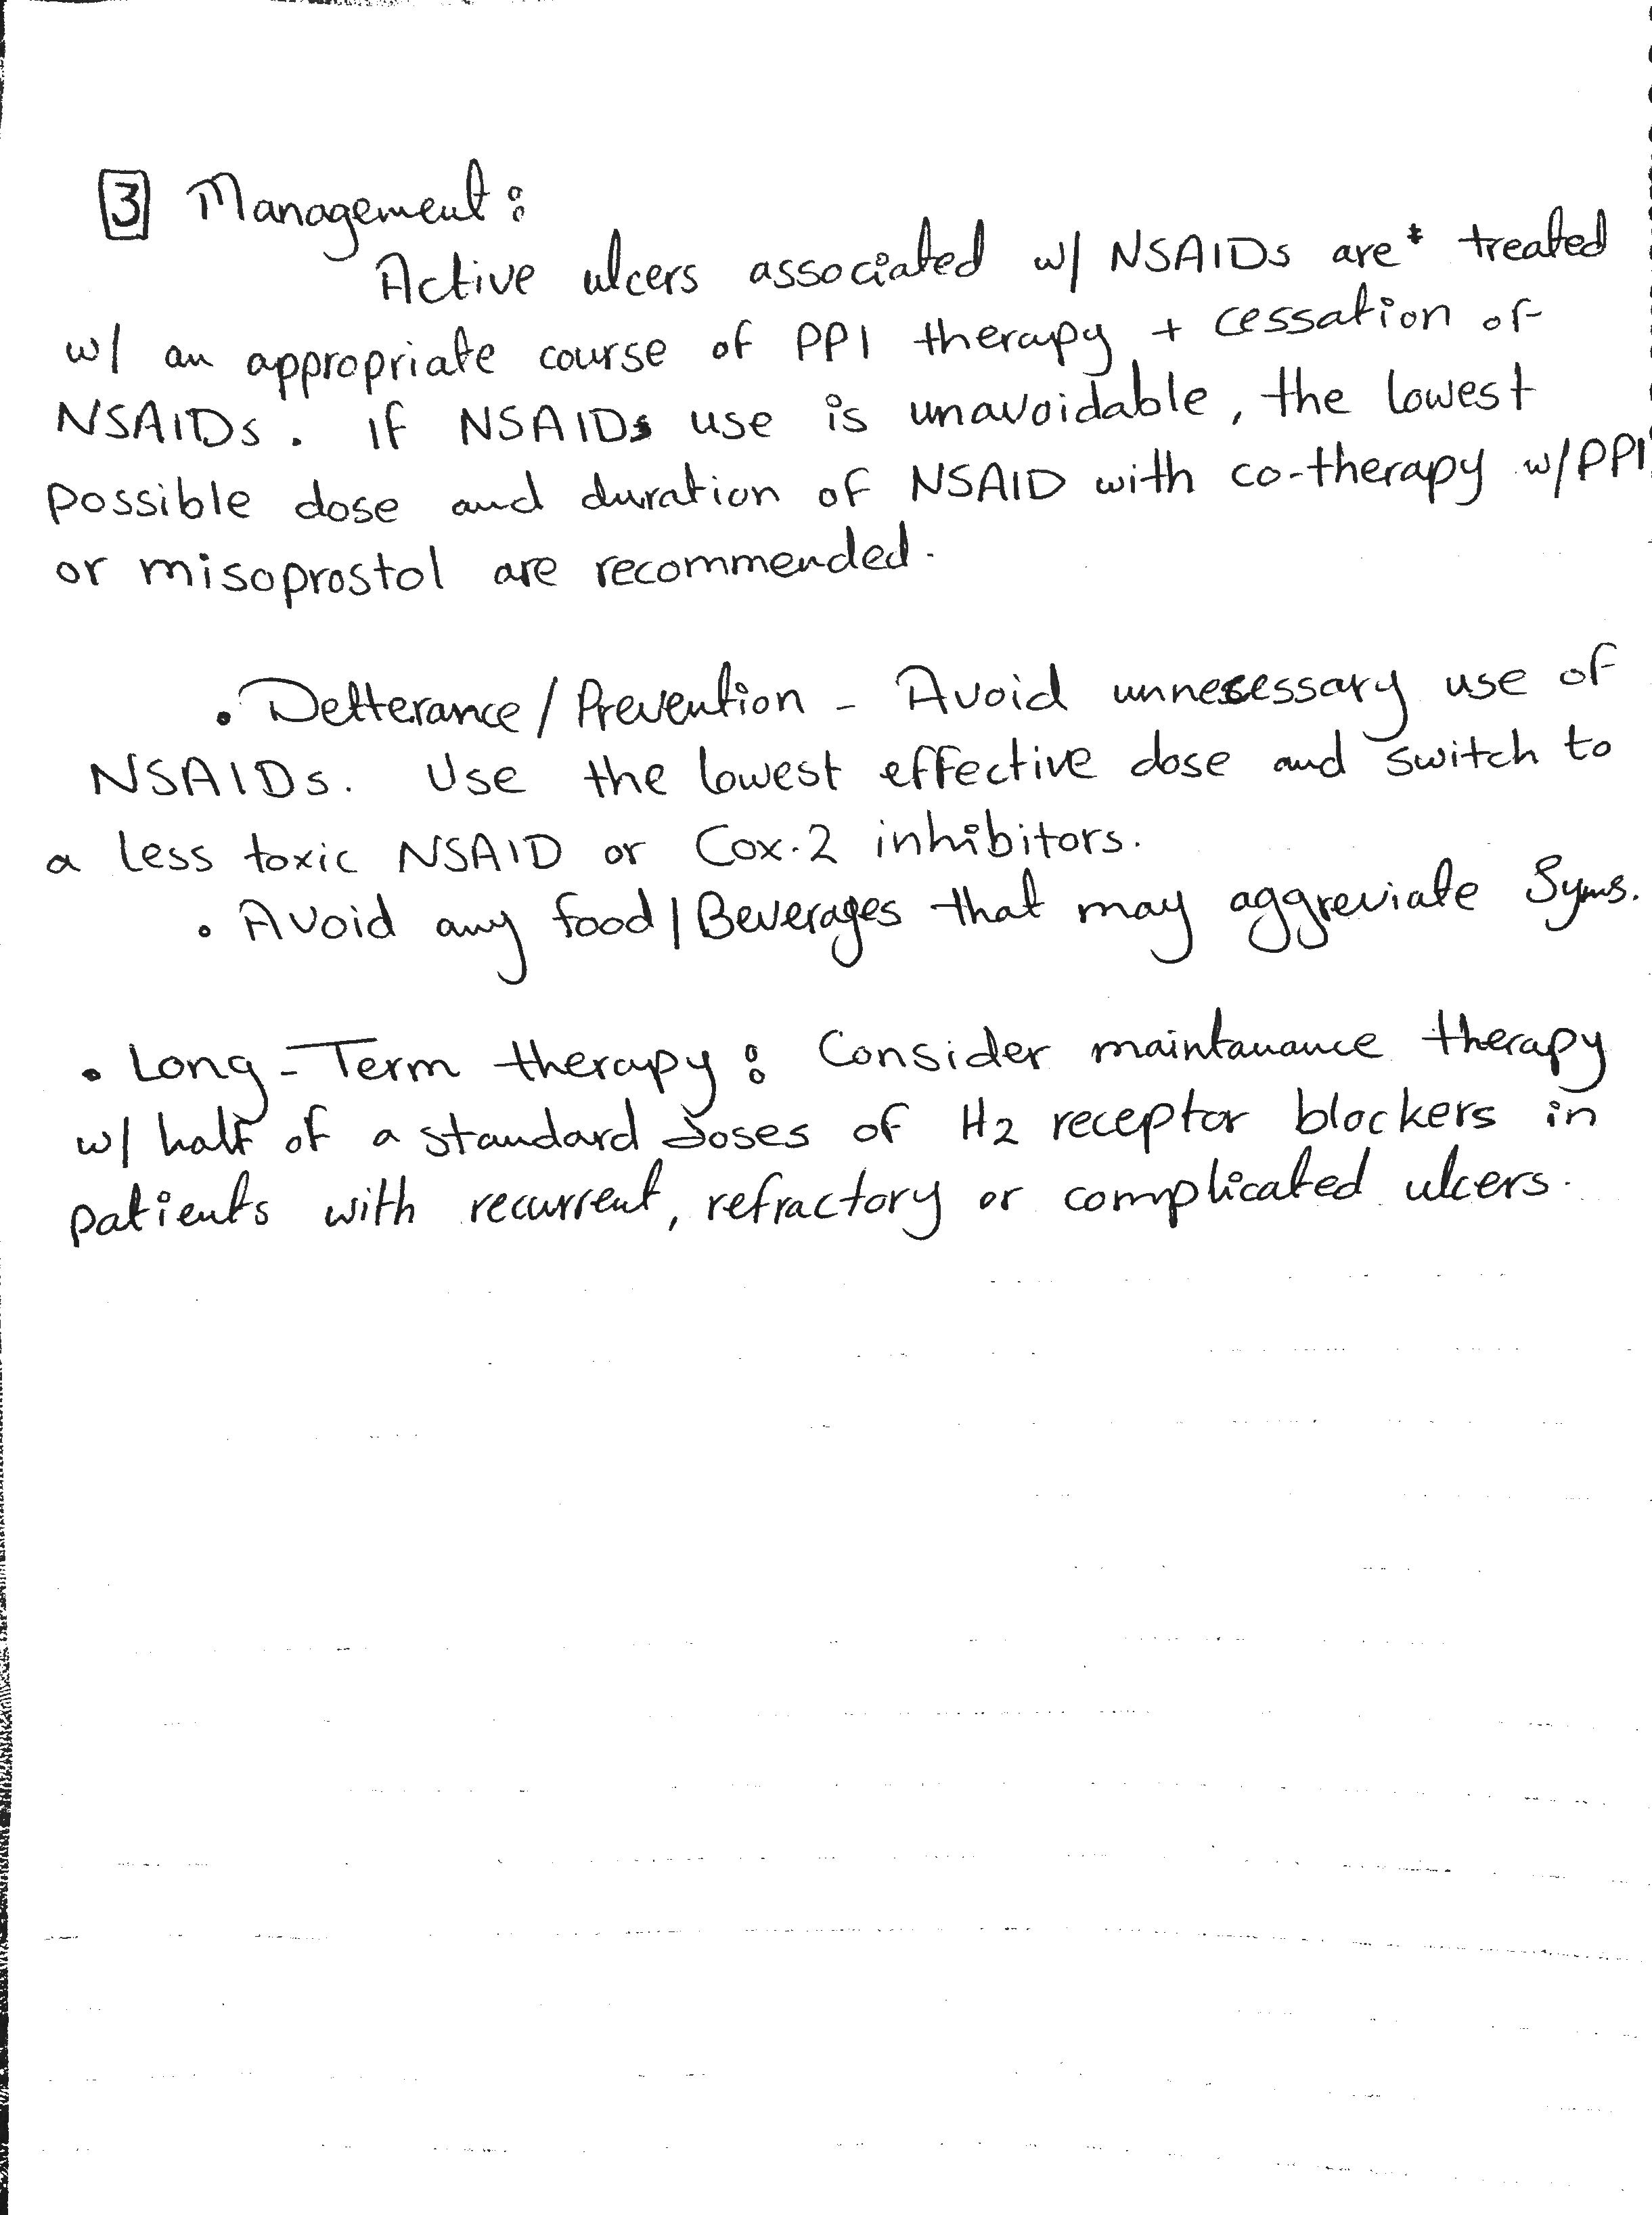 3 Management:
Active ulcers associated w/ NSAIDs are treated
w/ an appropriate course of PPI therapy + cessation of
NSAIDs. If NSAIDs use is unavoidable, the lowest
possible dose and duration of NSAID with co-therapy w/PPI
or misoprostol are recommended.
• Detterance/Prevention - Avoid unnecessary use of
NSAIDs. Use the lowest effective dose and switch to
a less toxic NSAID or Cox-2 inhibitors.
• Avoid any food/Beverages that may aggreviate Syms.
• Long-Term therapy: Consider maintanance therapy
w/ half of a standard doses of H2 receptor blockers in
patients with recurrent, refractory or complicated ulcers.